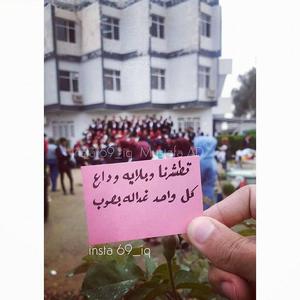 insta 69_iq Mustafa AD
تطشرنا وبلايه وداع
كل واحد غداله بصوب
insta 69_iq